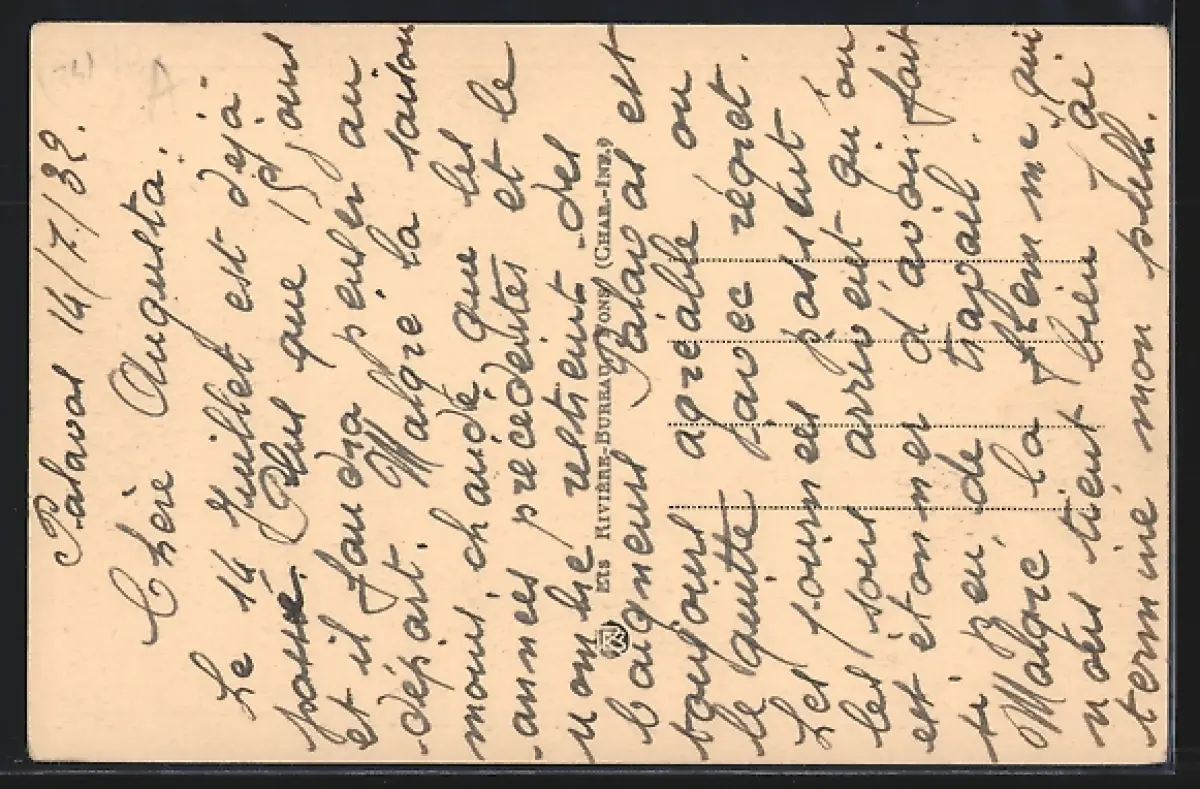 Palavas 14/7/32.
Chère Augusta.
Le 14 Juillet est déjà
passé. Plus que 15 jours
et il faudra penser au
départ. Malgré la saison
mous chaude que les
années précédentes et le
nombre restient des
baigneurs Palavas est
toujours agréable on
le quitte avec regret.
Les journées passent
les soirs arrivent qu'on
est étonné d'avoir fait
si peu de travail.
Malgré la "flemme" qui
nous tient bien j'ai
terminé mon pull.
Ets Rivière-Bureau, Pons (Char.-Inf.)